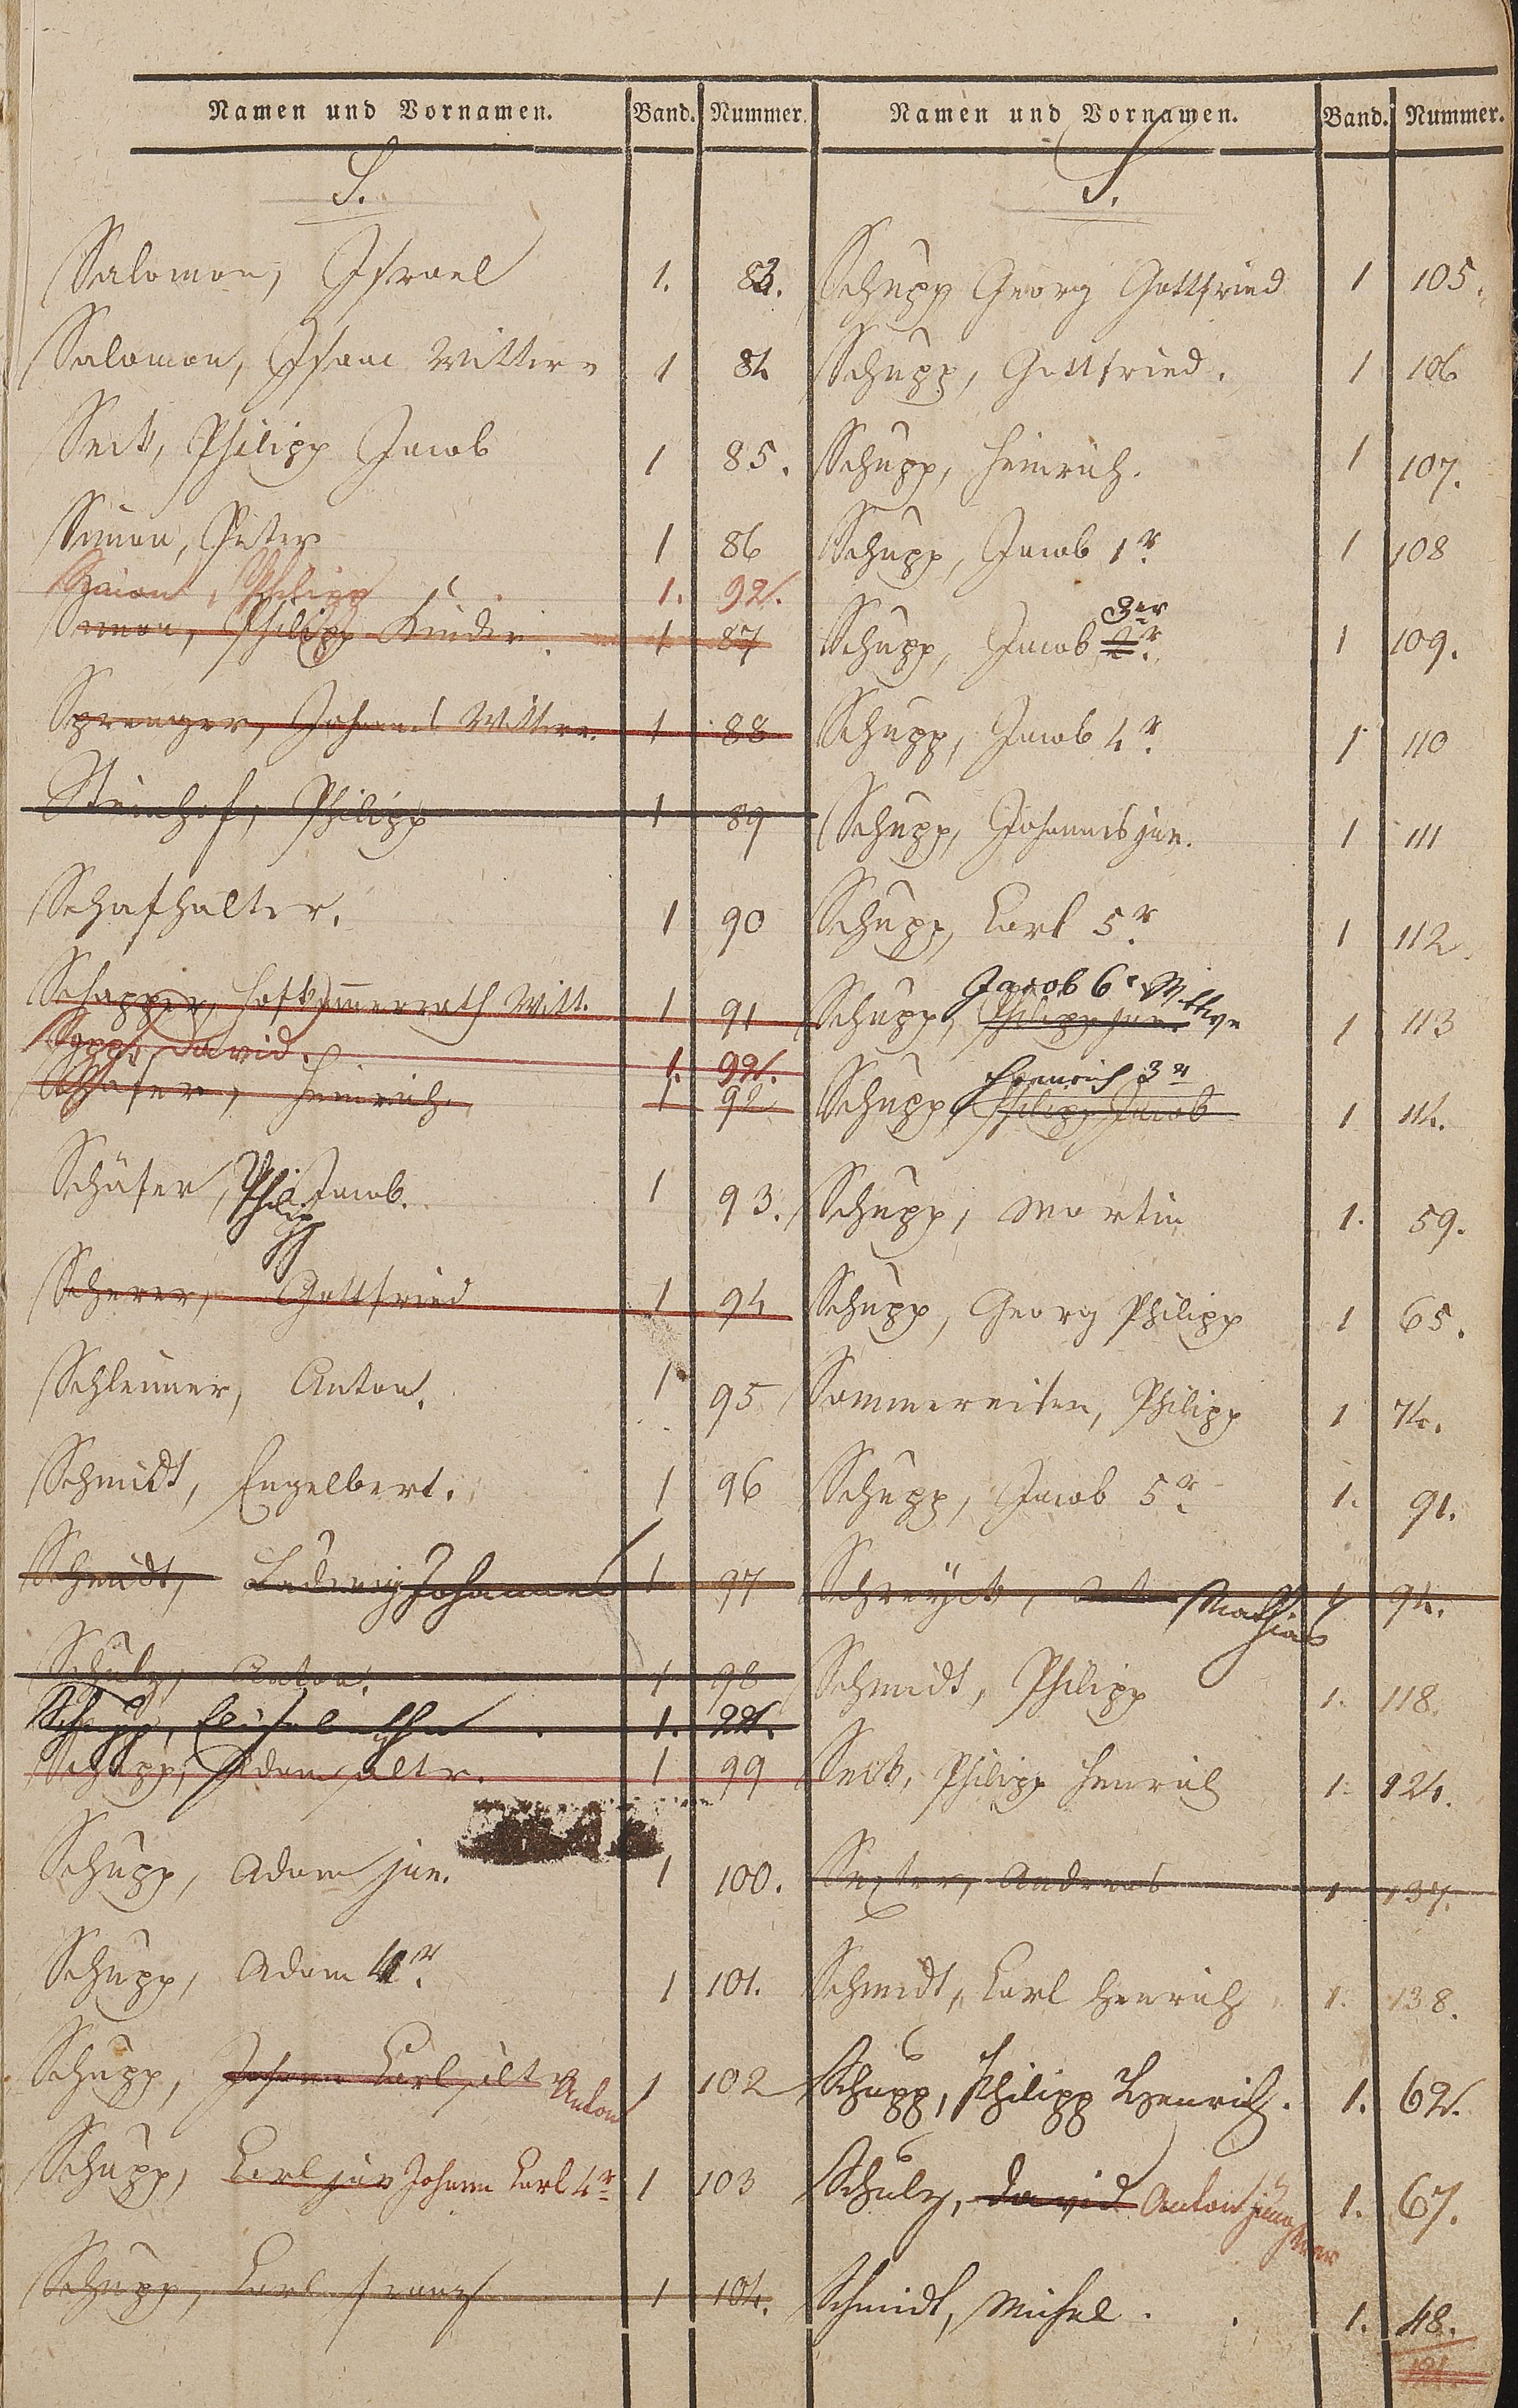 Namen und Vornamen. Band. Nummer.
S.
Salomon, Israel 1. 83.
Salomon, Isaac Wittwe 1 84
Seck, Philipp Jacob 1 85.
Simon, Peter 1 86
Simon, Philipp 1. 92.
Simon, Philipp Kinder. 1 87
Sprenger, Johannes Wittwe. 1 88
Steinhof, Philipp 1 89
Schafhalter. 1 90
Schapper, Hofkammerrath Witt. 1 91
David. 1. 92.
Schäfer, Heinrich. 1 92
Schäfer, Philipp Jacob. 1 93.
Scherer, Gottfried 1 94
Schlemmer, Anton. 1 95
Schmidt, Engelbert. 1 96
Schmidt, Ludwig Johannes 1 97
Schulz, Anton. 1 98
Schupp, Elisabetha 1. 22.
Schupp, Adam altr. 1 99
Schupp, Adam jun. 1 100.
Schupp, Adam 4r. 1 101.
Schupp, Johann Carl, alt Anton 1 102
Schupp, Carl jun Johann Carl 4r 1 103
Schupp, Carl Franz 1 104.
Namen und Vornamen. Band. Nummer.
S.
Schupp Georg Gottfried 1 105.
Schupp, Gottfried. 1 106
Schupp, Heinrich. 1 107.
Schupp, Jacob 1r. 1 108
Schupp, Jacob 2r. 3er 1 109.
Schupp, Jacob 4r. 1 110
Schupp, Johannes jun. 1 111
Schupp, Carl 5r. 1 112
Schupp, Philipp jun. Jacob 6r Wittwe 1 113
Schupp, Philipp Jacob Henrich 3r 1 114.
Schupp, Martin 1. 59.
Schupp, Georg Philipp 1 65.
Sommereisen, Philipp 1 74.
Schupp, Jacob 5r. 1. 91.
Schreyck, Mathias 1 94.
Schmidt, Philipp 1. 118.
Seck, Philipp Henrich 1. 124.
Sexter, Andreas 1 137.
Schmidt, Carl Henrich 1. 138.
Schupp, Philipp Henrich. 1. 62.
Schulz, David Anton jüngerer 1. 67.
Schmidt, Michel. 1. 48.